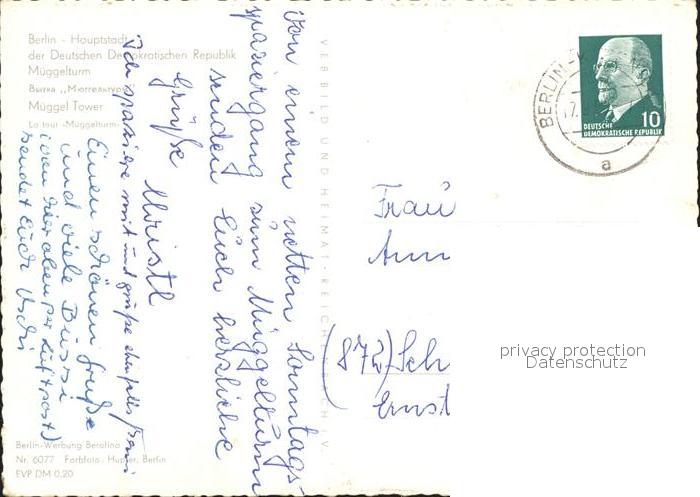 Berlin - Hauptstadt
der Deutschen Demokratischen Republik
Müggelturm
Вышка „Мюггельтурм"
Müggel Tower
La tour «Müggelturm»
Von einem netten Sonntags-
spaziergang zum Müggelturm
senden Euch herzliche
Grüße Christl
Ich spaziere mit und grüße ebenfalls
Einen schönen Gruß
und viele Bussi
(von hier oben per Luftpost)
sendet Euch Uschi
Berlin-Werbung Berolina
Nr. 6077 Farbfoto: Hupfer, Berlin
EVP DM 0,20
VEB BILD UND HEIMAT · REICHENBACH I. V.
BERLIN
a
10
DEUTSCHE
DEMOKRATISCHE REPUBLIK
Frau
Ann
(872) Sch
Ernst
privacy protection
Datenschutz